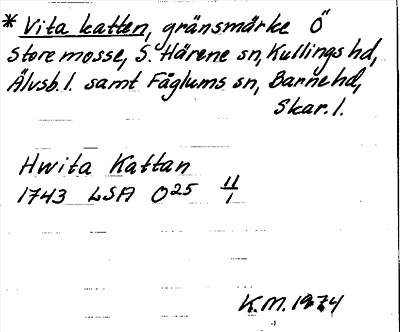 * Vita katten, gränsmärke Ö
Store mosse, S. Härene sn, Kullings hd,
Älvsb. l. samt Fåglums sn, Barne hd,
Skar. l.
Hwita Kattan
1743 LSA O25 11/1
K.M. 1974